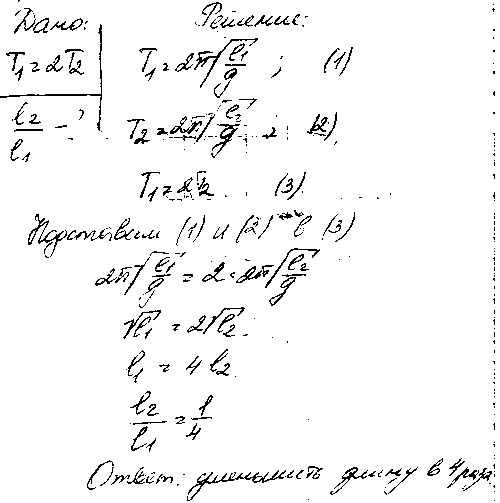 Дано: Решение:
T₁ = 2T₂ T₁ = 2π√(l₁/g) ; (1)
l₂/l₁ - ? T₂ = 2π√(l₂/g) ; (2)
T₁ = 2T₂ (3)
Подставим (1) и (2) в (3)
2π√(l₁/g) = 2·2π√(l₂/g)
√l₁ = 2√l₂.
l₁ = 4l₂
l₂/l₁ = 1/4
Ответ: уменьшить длину в 4 раза